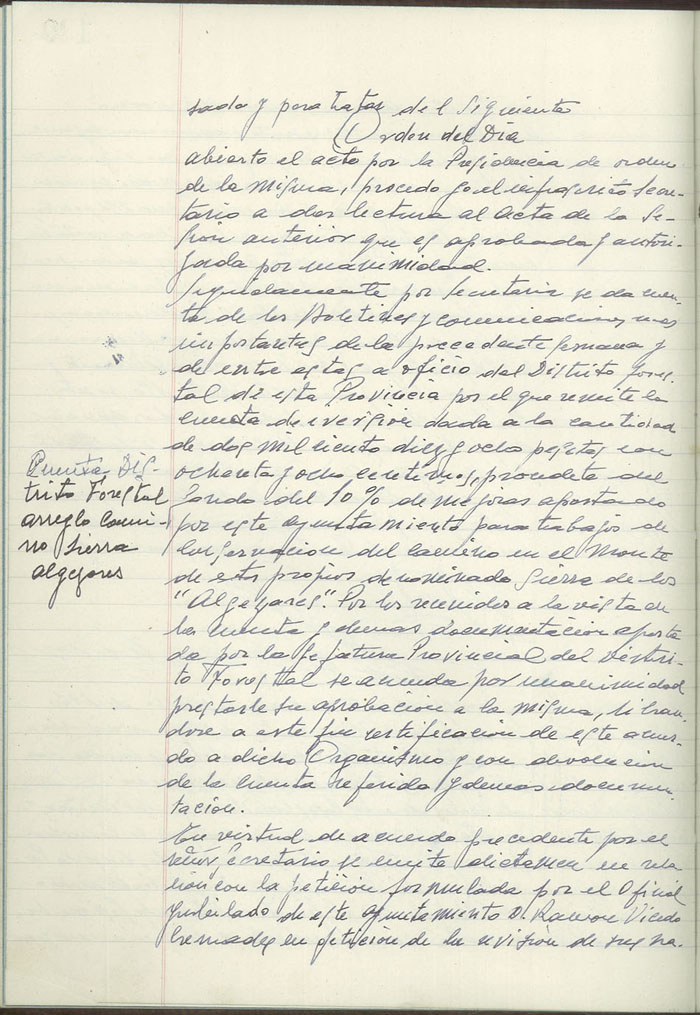 sada y para tratar del Siguiente
Orden del Dia
abierto el acto por la Presidencia de orden
de la misma, procedo yo el infrascrito Secre-
tario a dar lectura al Acta de la Se-
sion anterior que es aprobada y autori-
zada por unanimidad.
Seguidamente por Secretaria se da cuen-
ta de los Boletines y comunicaciones mas
importantes de la precedente semana y
de entre estas a oficio del Distrito Fores-
tal de esta Provincia por el que remite la
cuenta de inversion dada a la cantidad
de dos mil ciento diez y ocho pesetas con
ochenta y ocho centimos, procedete del
fondo del 10% de mejoras aportado
por este ayuntamiento para trabajos de
Conservacion del camino en el Monte
de estos propios denominado Sierra de los
"Algezares". Por los reunidos a la vista de
la cuenta y demas documentacion aporta
da por la Jefatura Provincial del Distri-
to Forestal se acuerda por unanimidad
prestarle su aprobacion a la misma, libran-
dose a este fin certificacion de este acuer-
do a dicho Organismo y con devolucion
de la cuenta referida y demas documen-
tacion.
En virtud de acuerdo precedente por el
señor Secretario se emite dictamen en rela
cion con la peticion formulada por el Oficial
Jubilado de este Ayuntamiento D. Ramon Vicedo
Cremades en peticion de la revision de sus ha-
Cuenta Dis-
trito Forestal
arreglo Cami-
no Sierra
algezares